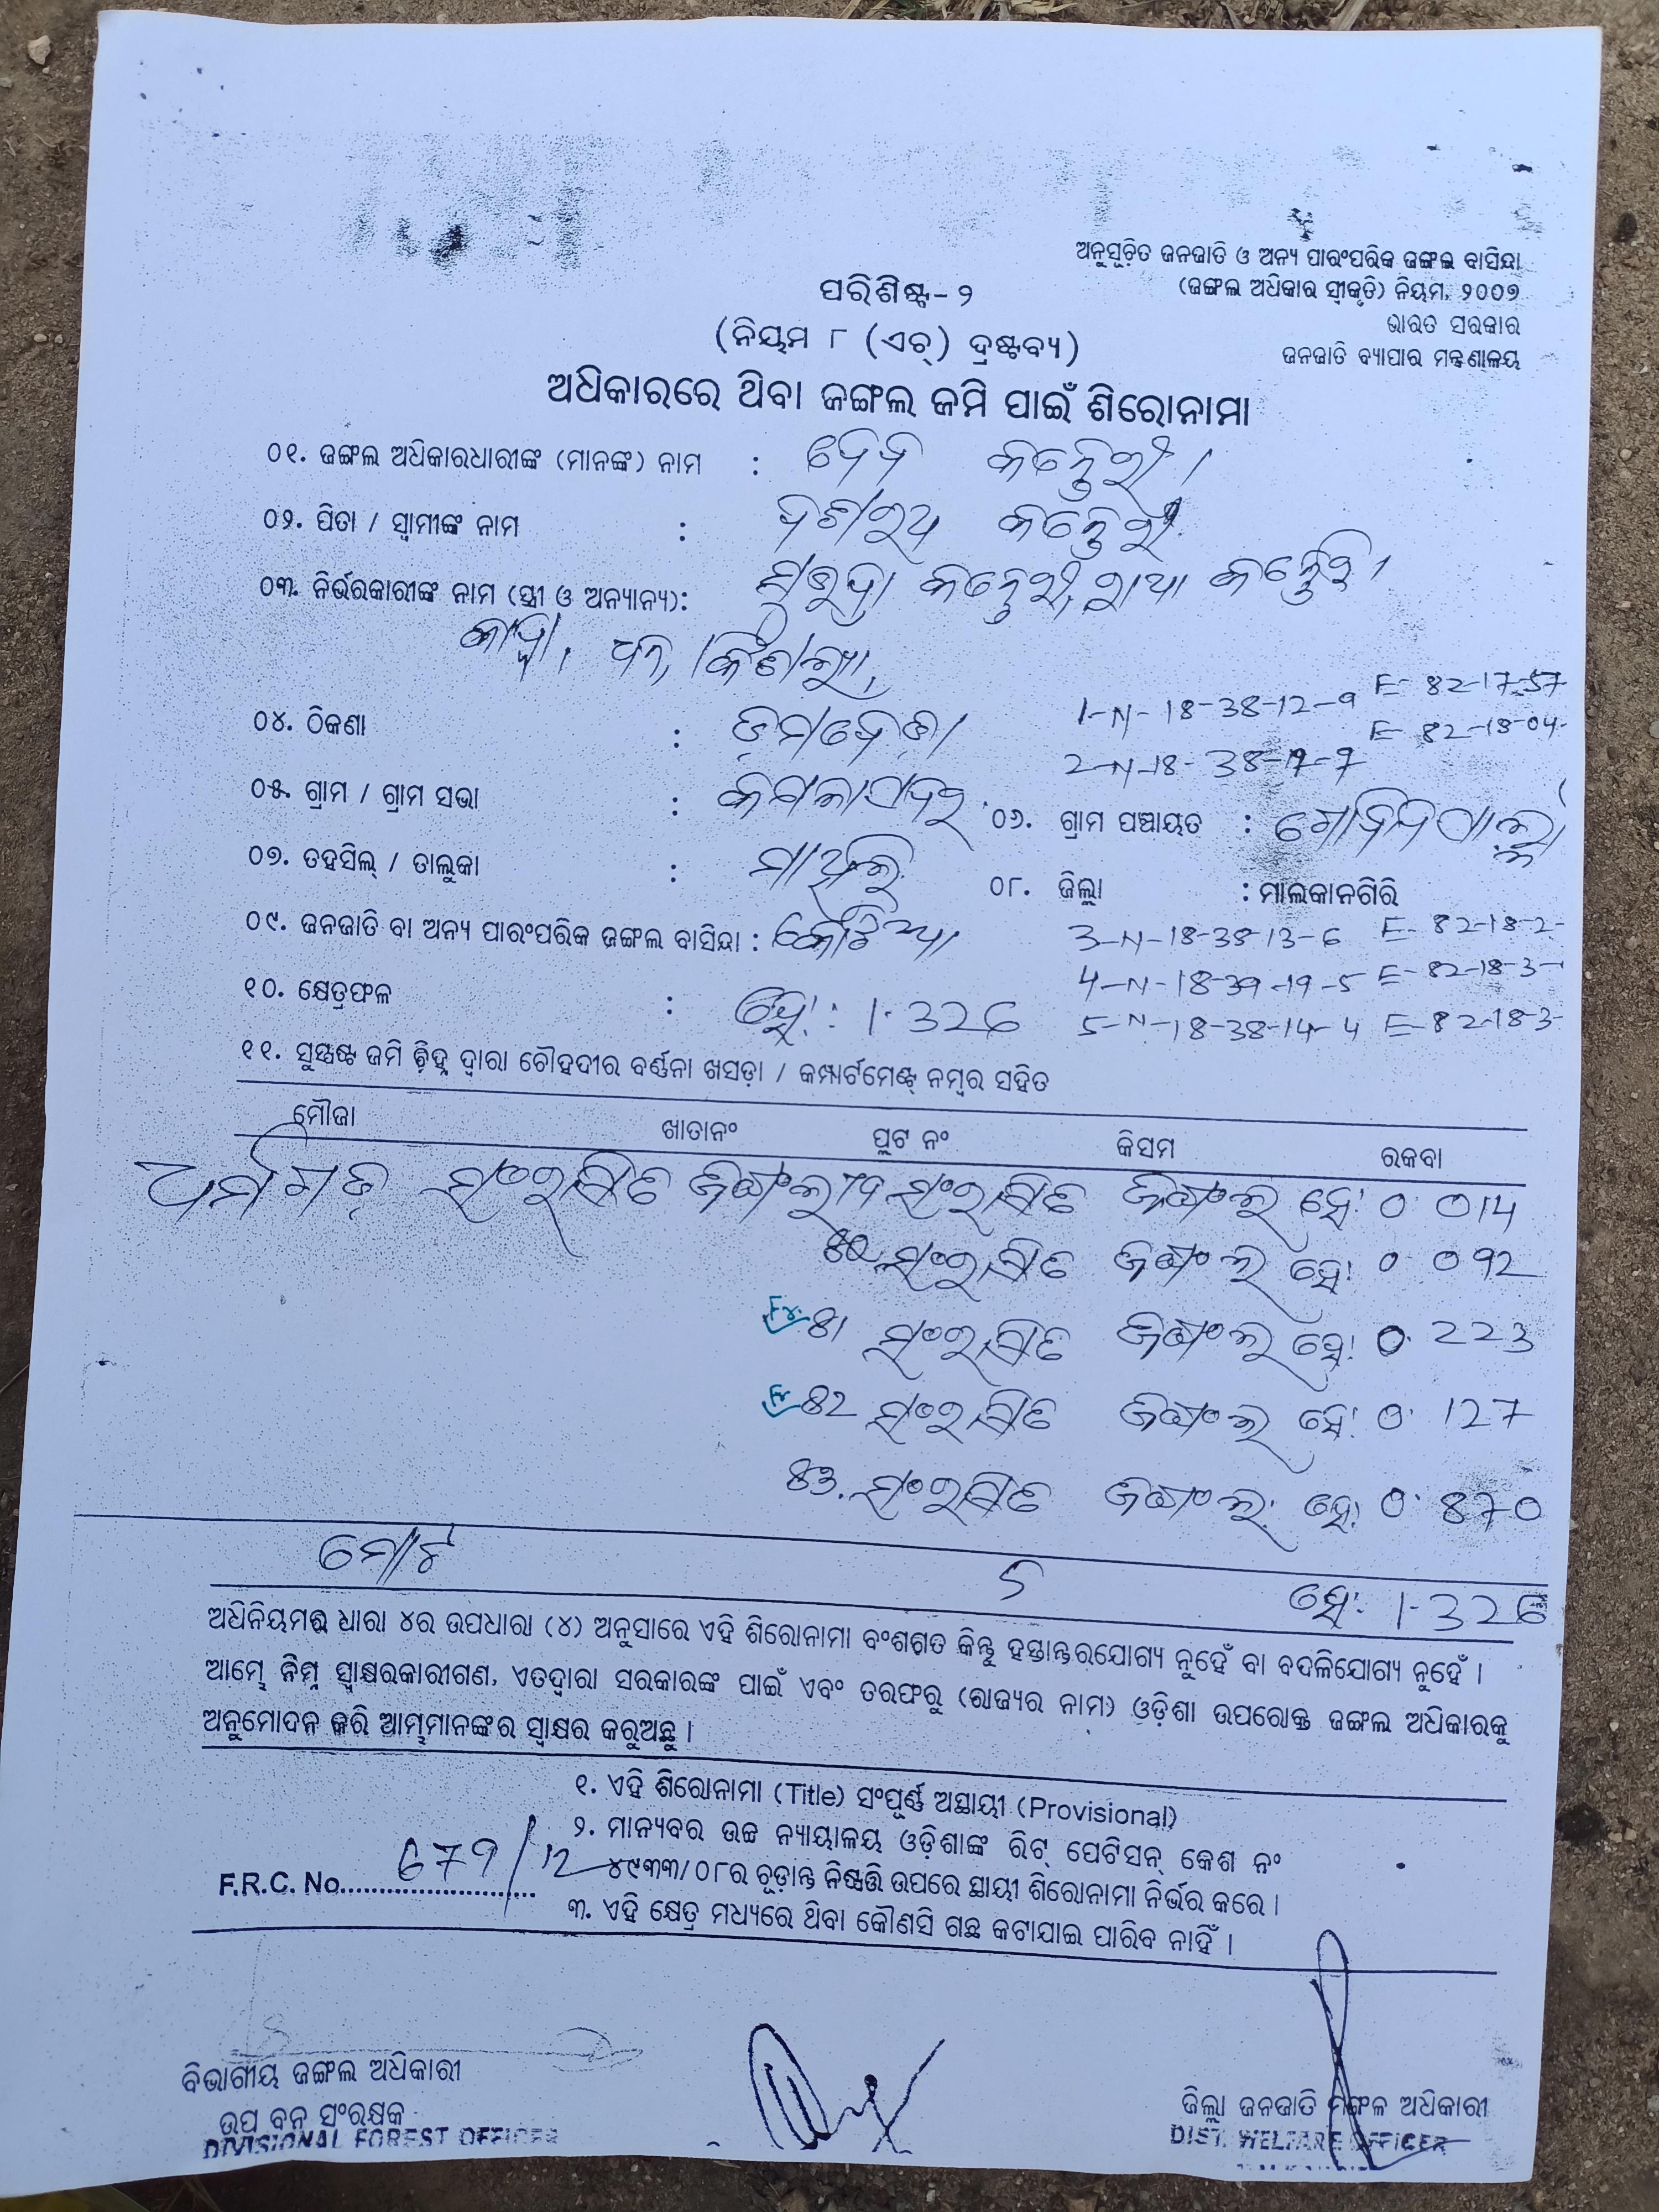 ଅନୁସୂଚିତ ଜନଜାତି ଓ ଅନ୍ୟ ପାରଂପରିକ ଜଙ୍ଗଲ ବାସିନ୍ଦା
(ଜଙ୍ଗଲ ଅଧିକାର ସ୍ୱୀକୃତି) ନିୟମ, ୨୦୦୭
ଭାରତ ସରକାର
ଜନଜାତି ବ୍ୟାପାର ମନ୍ତ୍ରଣାଳୟ
ପରିଶିଷ୍ଟ - ୨
(ନିୟମ ୮ (ଏଚ୍) ଦ୍ରଷ୍ଟବ୍ୟ)
ଅଧିକାରରେ ଥିବା ଜଙ୍ଗଲ ଜମି ପାଇଁ ଶିରୋନାମା
୦୧. ଜଙ୍ଗଲ ଅଧିକାରଧାରୀଙ୍କ (ମାନଙ୍କ) ନାମ :
୦୨. ପିତା / ସ୍ୱାମୀଙ୍କ ନାମ : ଦଶରଥ
୦୩. ନିର୍ଭରକାରୀଙ୍କ ନାମ (ସ୍ତ୍ରୀ ଓ ଅନ୍ୟାନ୍ୟ):
1-N-18-38-12-9 E-82-17-57
୦୪. ଠିକଣା : E-82-18-04-
2-N-18-38-12-7
୦୫. ଗ୍ରାମ / ଗ୍ରାମ ସଭା : ୦୬. ଗ୍ରାମ ପଞ୍ଚାୟତ :
୦୭. ତହସିଲ୍ / ତାଲୁକା : ମାଥିଲି ୦୮. ଜିଲ୍ଲା : ମାଲକାନଗିରି
୦୯. ଜନଜାତି ବା ଅନ୍ୟ ପାରଂପରିକ ଜଙ୍ଗଲ ବାସିନ୍ଦା : 3-N-18-38-13-6 E-82-18-2-
4-N-18-39-19-5 E-82-18-3-
୧୦. କ୍ଷେତ୍ରଫଳ : ହେ: 1.326 5-N-18-38-14-4 E-82-18-3-
୧୧. ସୁସ୍ପଷ୍ଟ ଜମି ଚିହ୍ନ ଦ୍ୱାରା ଚୌହଦୀର ବର୍ଣ୍ଣନା ଖସଡ଼ା / କମ୍ପାର୍ଟମେଣ୍ଟ ନମ୍ବର ସହିତ
ମୌଜା ଖାତାନଂ ପ୍ଲଟ ନଂ କିସମ ରକବା
ଧର୍ମଗଡ଼ ସଂରକ୍ଷିତ ଜଙ୍ଗଲ ସଂରକ୍ଷିତ ଜଙ୍ଗଲ ହେ: ୦ 014
ସଂରକ୍ଷିତ ଜଙ୍ଗଲ ହେ: ୦ 092
81 ସଂରକ୍ଷିତ ଜଙ୍ଗଲ ହେ: ୦. 223
82 ସଂରକ୍ଷିତ ଜଙ୍ଗଲ ହେ: ୦. 127
83. ସଂରକ୍ଷିତ ଜଙ୍ଗଲ ହେ: ୦. 870
ମୋଟ 5 ହେ: 1.326
ଅଧିନିୟମର ଧାରା ୪ର ଉପଧାରା (୪) ଅନୁସାରେ ଏହି ଶିରୋନାମା ବଂଶଗତ କିନ୍ତୁ ହସ୍ତାନ୍ତରଯୋଗ୍ୟ ନୁହେଁ ବା ବଦଳିଯୋଗ୍ୟ ନୁହେଁ ।
ଆମ୍ଭେ ନିମ୍ନ ସ୍ୱାକ୍ଷରକାରୀଗଣ, ଏତଦ୍ୱାରା ସରକାରଙ୍କ ପାଇଁ ଏବଂ ତରଫରୁ (ରାଜ୍ୟର ନାମ) ଓଡ଼ିଶା ଉପରୋକ୍ତ ଜଙ୍ଗଲ ଅଧିକାରକୁ
ଅନୁମୋଦନ କରି ଆମ୍ଭମାନଙ୍କର ସ୍ୱାକ୍ଷର କରୁଅଛୁ ।
୧. ଏହି ଶିରୋନାମା (Title) ସଂପୂର୍ଣ୍ଣ ଅସ୍ଥାୟୀ (Provisional)
୨. ମାନ୍ୟବର ଉଚ୍ଚ ନ୍ୟାୟାଳୟ ଓଡ଼ିଶାଙ୍କ ରିଟ୍ ପେଟିସନ୍ କେଶ ନଂ
F.R.C. No. 679/12 ୪୯୩୩/୦୮ର ଚୂଡ଼ାନ୍ତ ନିଷ୍ପତ୍ତି ଉପରେ ସ୍ଥାୟୀ ଶିରୋନାମା ନିର୍ଭର କରେ ।
୩. ଏହି କ୍ଷେତ୍ର ମଧ୍ୟରେ ଥିବା କୌଣସି ଗଛ କଟାଯାଇ ପାରିବ ନାହିଁ ।
ବିଭାଗୀୟ ଜଙ୍ଗଲ ଅଧିକାରୀ
ଉପ ବନ ସଂରକ୍ଷକ
DIVISIONAL FOREST OFFICER
ଜିଲ୍ଲା ଜନଜାତି ମଙ୍ଗଳ ଅଧିକାରୀ
DIST. WELFARE OFFICER